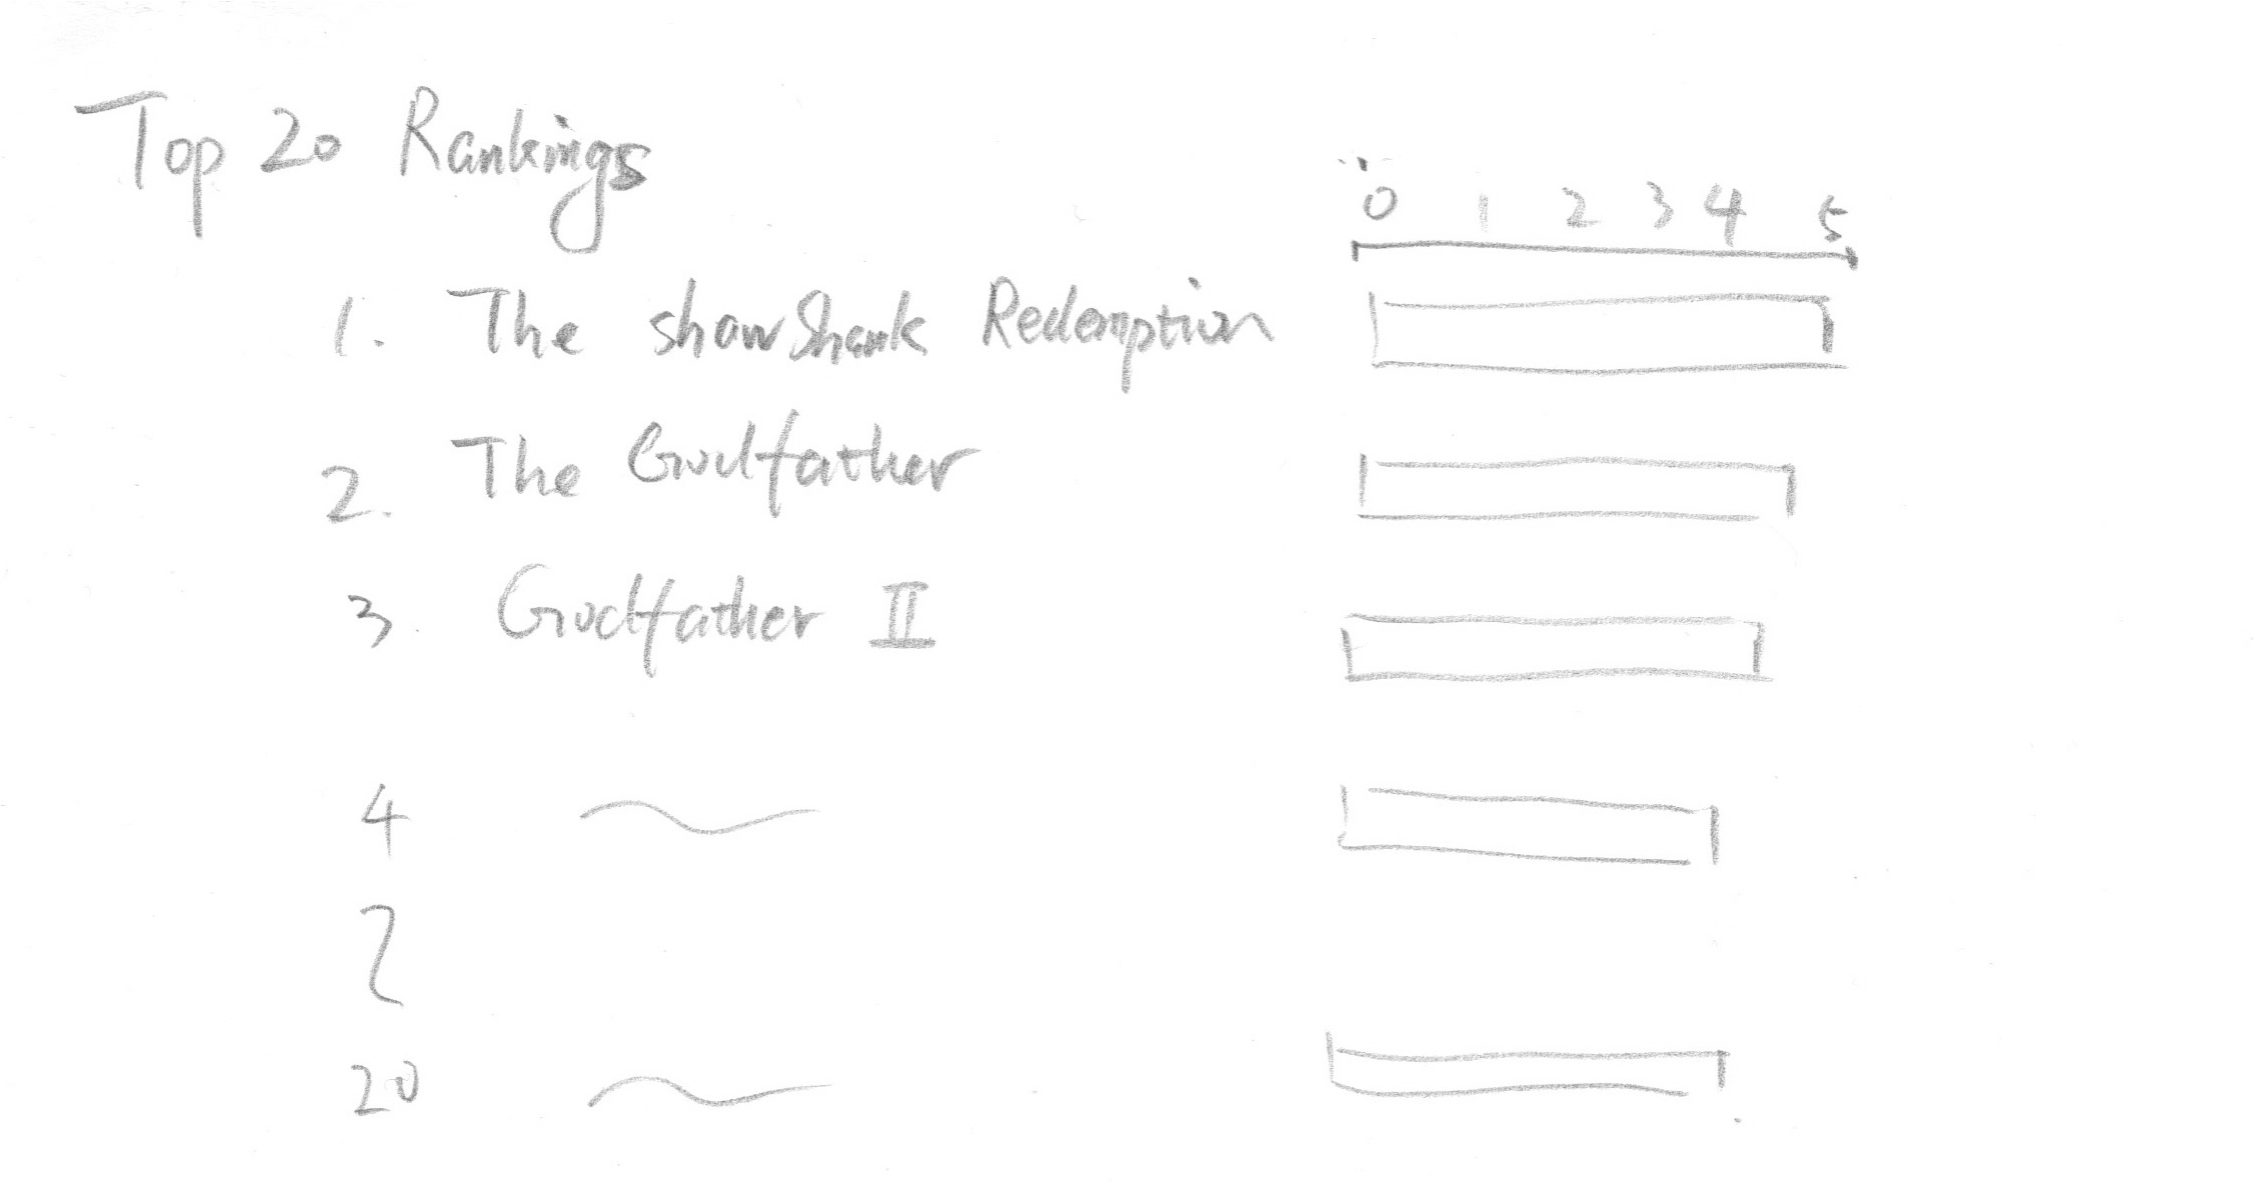 Top 20 Rankings
0 1 2 3 4 5
1. The shawshank Redemption
2. The Godfather
3. Godfather II
4
20